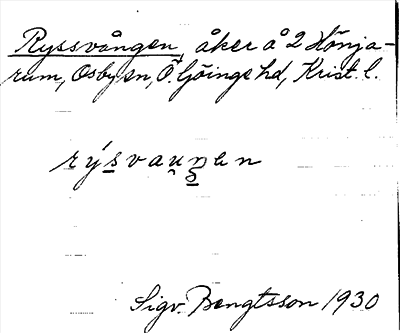 Ryssvången, åker å 2 Hönja-
rum, Osby sn, Ö. Göinge hd, Krist. l.
rýs̲vau̯n̲en
Sigv. Bengtsson 1930